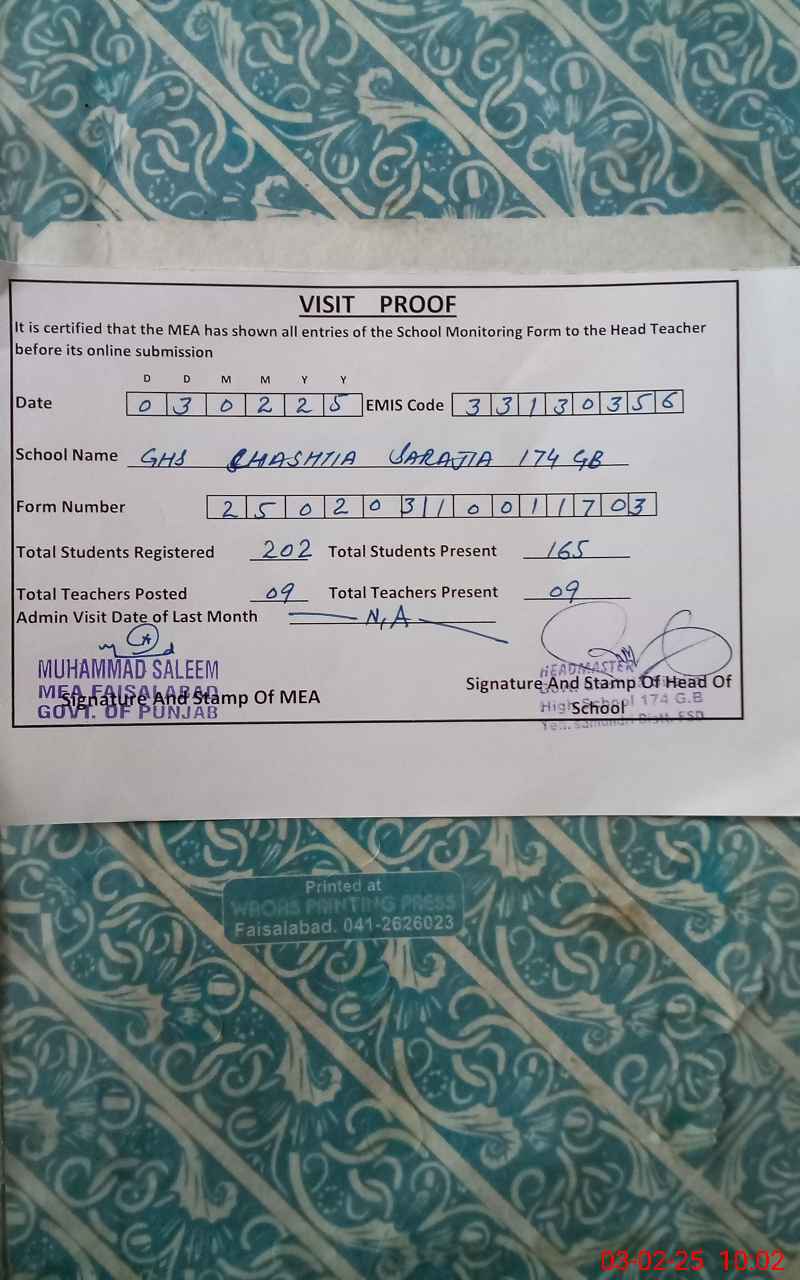 VISIT PROOF
It is certified that the MEA has shown all entries of the School Monitoring Form to the Head Teacher
before its online submission
D D M M Y Y
Date 0 3 0 2 2 5 EMIS Code 3 3 1 3 0 3 5 6
School Name GHS CHASHTIA SARAJIA 174 GB
Form Number 2 5 0 2 0 3 1 0 0 1 1 7 0 3
Total Students Registered 202 Total Students Present 165
Total Teachers Posted 09 Total Teachers Present 09
Admin Visit Date of Last Month N,A
MUHAMMAD SALEEM
MEA FAISALABAD
GOVT. OF PUNJAB
Signature And Stamp Of MEA
HEADMASTER
High School 174 G.B
Signature And Stamp Of Head Of
School
Printed at
WAQAS PRINTING PRESS
Faisalabad. 041-2626023
03-02-25 10:02